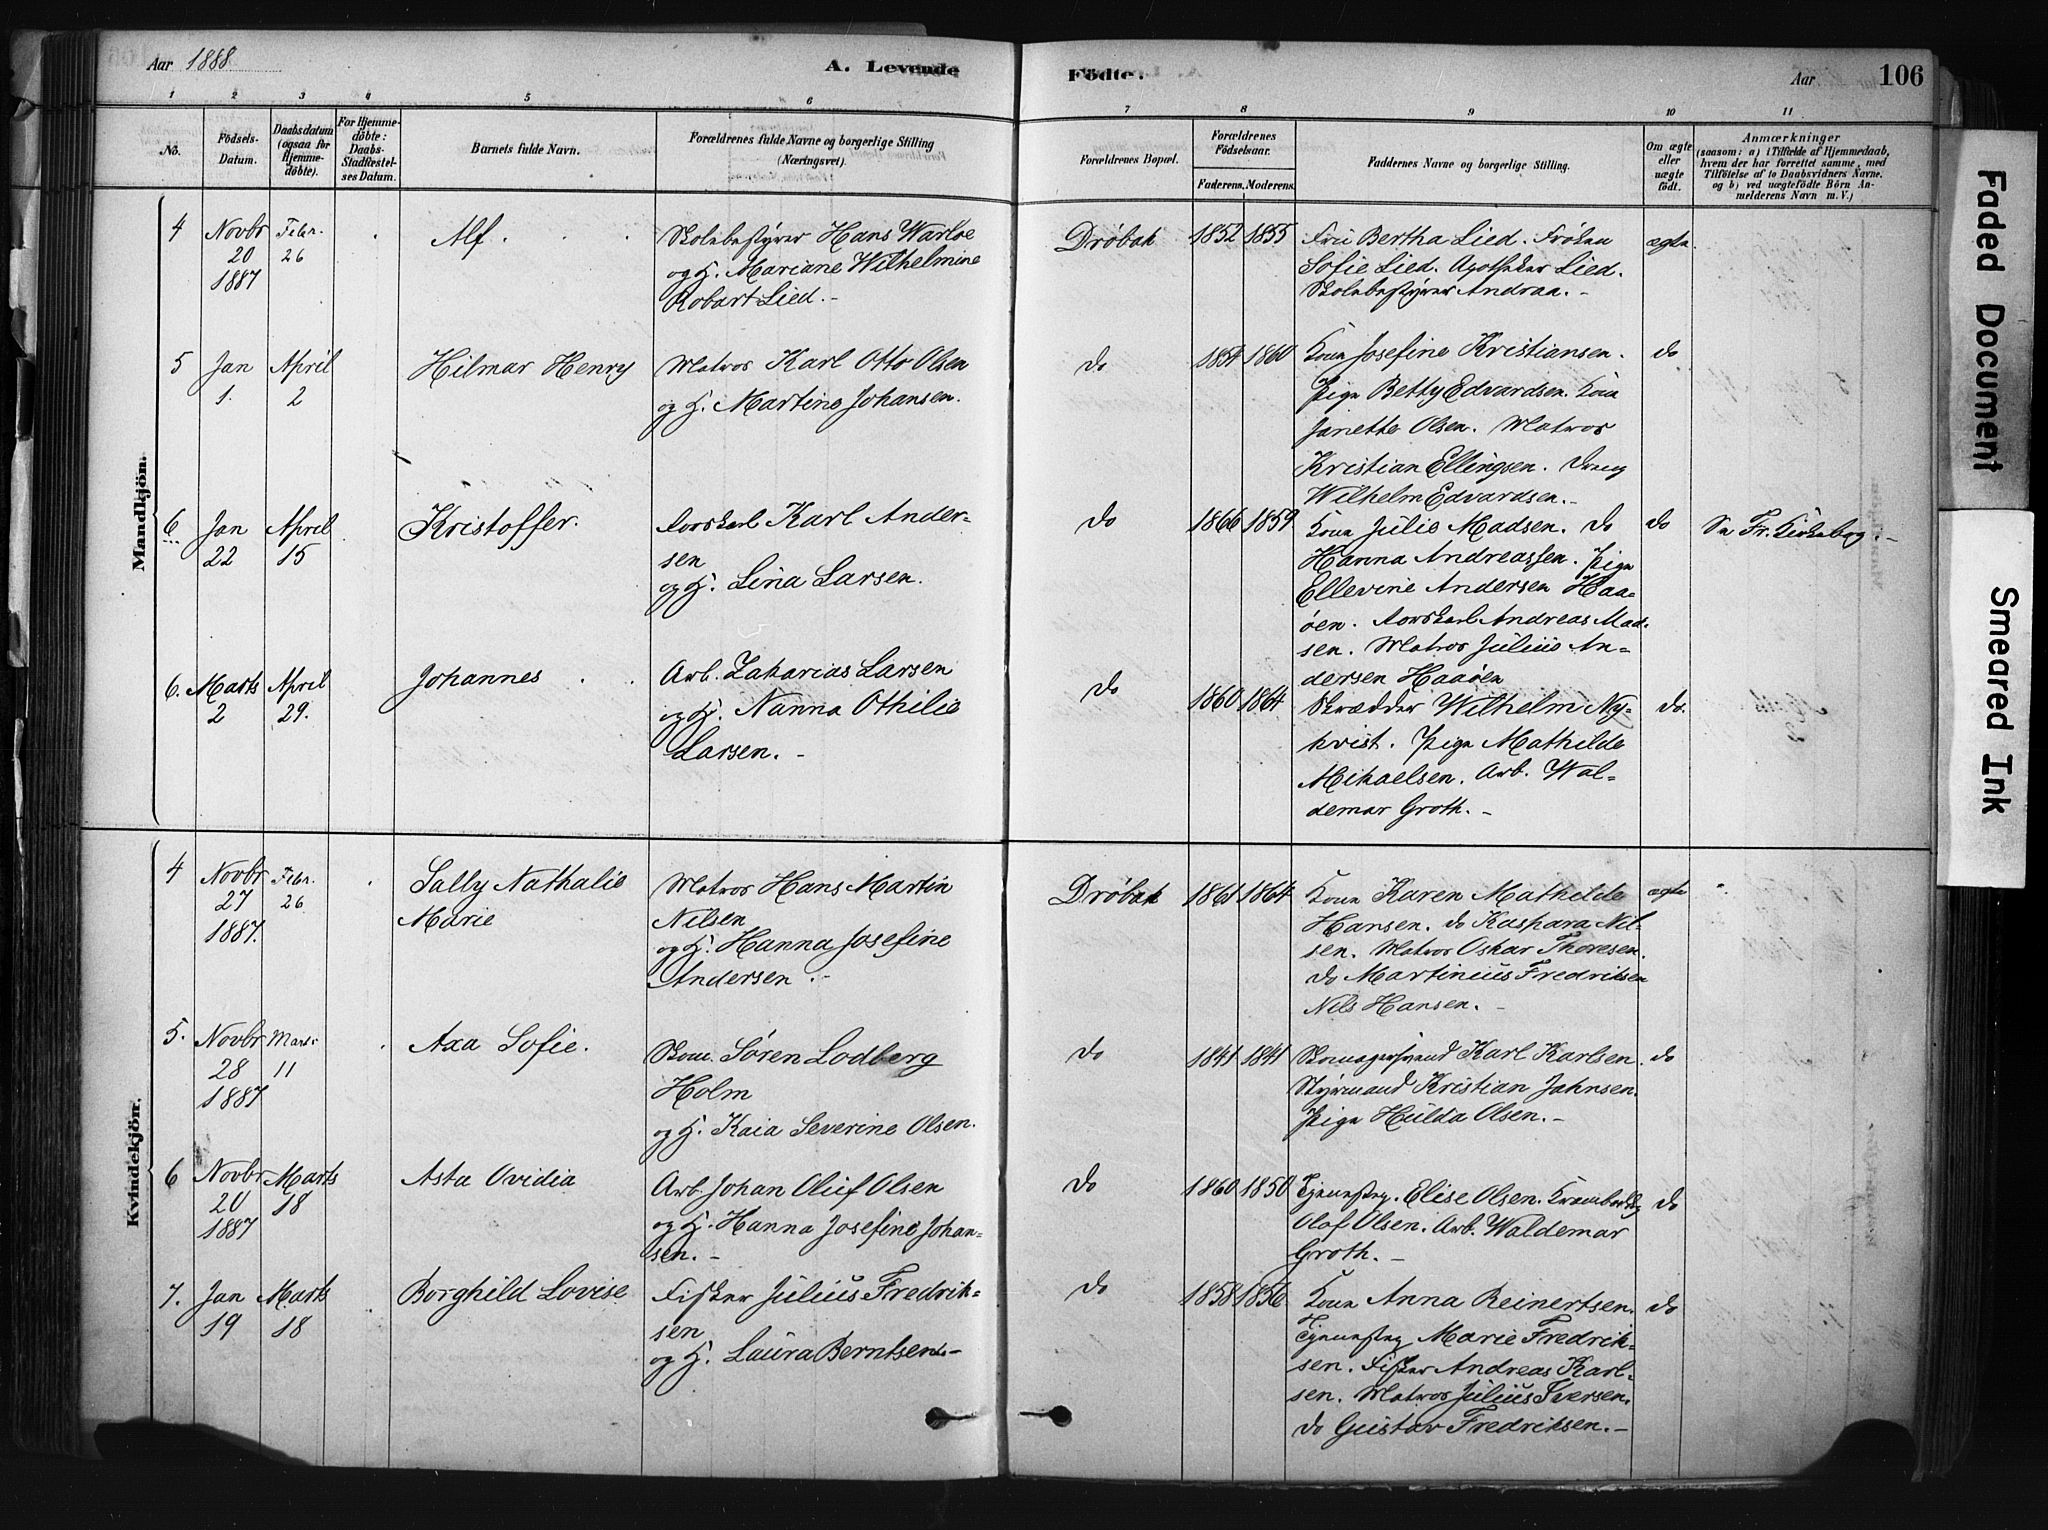 Aar 1888
A. Levende
Födte.
Aar
106
1 2 3 4 5 6 7 8 9 10 11
No.
Födsels-
Datum.
Daabsdatum
(ogsaa for
Hjemme-
döbte).
For Hjemme-
döbte:
Daabs-
Stadfæstel-
ses Datum.
Barnets fulde Navn.
Forældrenes fulde Navne og borgerlige Stilling
(Næringsvei).
Forældrenes Bopæl.
Forældrenes
Födselsaar.
Faderens. Moderens.
Faddernes Navne og borgerlige Stilling.
Om ægte
eller
uægte
födt.
Anmærkninger
(saasom: a) i Tilfælde af Hjemmedaab,
hvem der har forrettet samme, med
Tilföielse af to Daabsvidners Navne.
og b) ved uægtefödte Börn An-
melderens Navn m. V.)
Mandkjön.
4 Novbr 20 1887 Febr. 26 Alf.
Skolebestyrer Hans Warloe
og H. Mariane Wilhelmine
Robart Lied. -
Drøbak 1852 1855
Fru Bertha Lied. Frøken
Sofie Lied. Apotheker Lied.
Skolebestyrer Andraa. -
ægte.
5 Jan 1. April 2 Hilmar Henry
Matros Karl Otto Olsen
og H. Martine Johansen.
do 1854 1860
Kone Josefine Kristiansen.
Pige Betty Edvardsen. Kone
Janette Olsen. Matros
Kristian Ellingsen. Dreng
Wilhelm Edvardsen. -
do
6 Jan 22 April 15 Kristoffer.
Karl Ander-
sen
og H. Lina Larsen.
do 1866 1859
Kone Julie Madsen. do
Hanna Andreassen. Pige
Ellevine Andersen Haa-
øen. Andreas Mad-
sen. Matros Julius An-
dersen Haaøen
do
Se Fr. Kirkebog. -
6. Marts 2 April 29. Johannes
Arb. Zakarias Larsen
og H. Nanna Othilie
Larsen. -
do 1860 1864
Skrædder Wilhelm Ny-
kvist. Pige Mathilde
Mikaelsen. Arb. Wal-
demar Groth. -
do.
Kvindekjön.
4 Novbr 27 1887. Febr. 26 Sally Nathalie
Marie
Matros Hans Martin
Nilsen
og H. Hanna Josefine
Andersen. -
Drøbak 1861 1864
Kone Karen Mathilde
Hansen. do Kaspara Nil-
sen. Matros Oskar Thoresen.
do Martinius Fredriksen
Nils Hansen. -
ægte
5. Novbr 28 1887 Marts 11 Axa Sofie.
Skom. Søren Lodberg
Holm
og H. Kaia Severine Olsen.
do 1841 1841
Skomagersvend Karl Karlsen.
Styrmand Kristian Jahnsen.
Pige Hulda Olsen. -
do
6 Novbr 20 1887 Marts 18 Asta Ovidia
Arb. Johan Oluf Olsen
og H. Hanna Josefine Johan-
sen. -
do 1860 1850
Tjenestep. Elise Olsen.
Olaf Olsen. Arb. Waldemar
Groth. -
do
7. Jan 19 Marts 18 Borghild Lovise
Fisker Julius Fredrik-
sen
og H. Laura Berntsen. -
do 1858 1856
Kone Anna Reinertsen.
Tjenestep Marie Fredrik-
sen. Fisker Andreas Karl-
sen. Matros Julius Iversen.
do Gustav Fredriksen. -
do
Faded Document
Smeared Ink